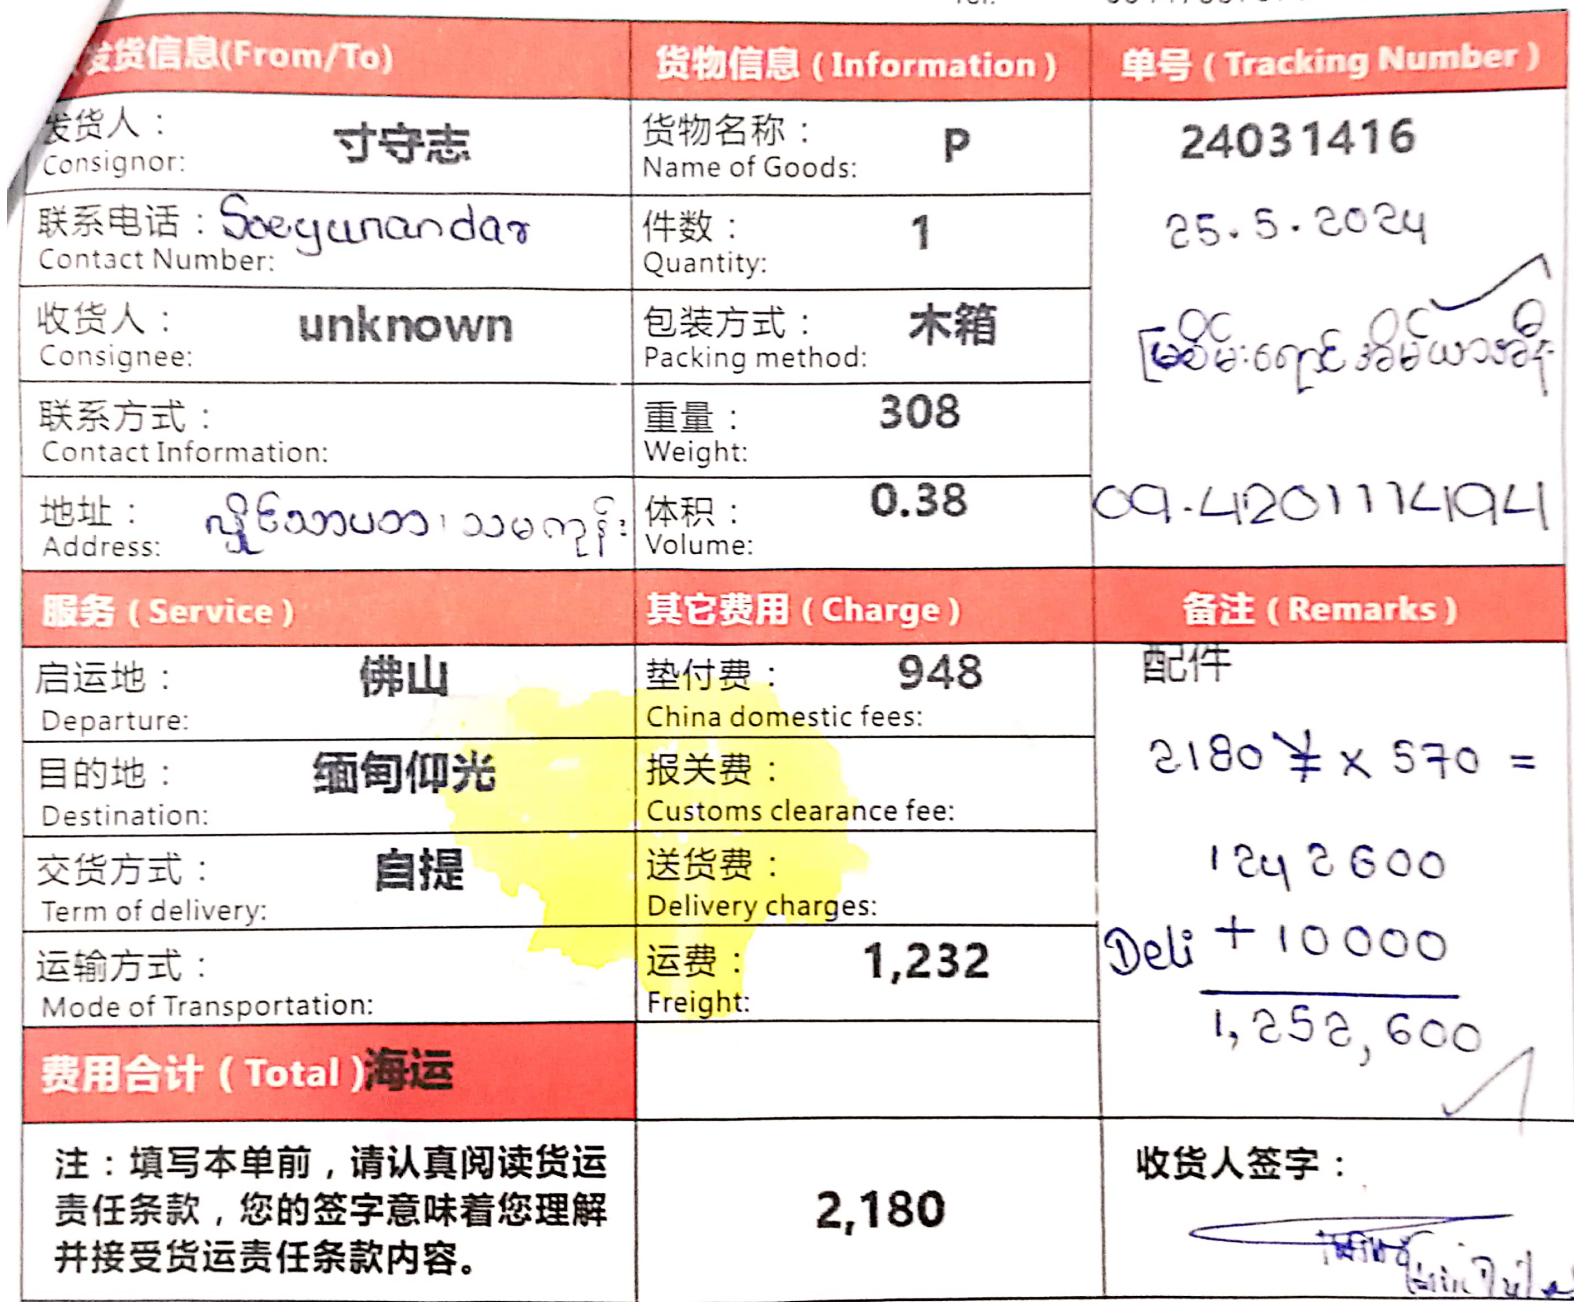 发货信息(From/To)
货物信息 ( Information )
单号 ( Tracking Number )
发货人：
Consignor:
寸守志
货物名称：
Name of Goods:
P
24031416
联系电话：
Contact Number:
Soeyunandar
件数：
Quantity:
1
25.5.2024
收货人：
Consignee:
unknown
包装方式：
Packing method:
木箱
联系方式：
Contact Information:
重量：
Weight:
308
地址：
Address:
体积：
Volume:
0.38
09-420111494
服务 ( Service )
其它费用 ( Charge )
备注 ( Remarks )
启运地：
Departure:
佛山
垫付费：
China domestic fees:
948
配件
2180 ¥ x 570 =
目的地：
Destination:
缅甸仰光
报关费：
Customs clearance fee:
交货方式：
Term of delivery:
自提
送货费：
Delivery charges:
1242600
Deli + 10000
运输方式：
Mode of Transportation:
运费：
Freight:
1,232
1,252,600
费用合计 ( Total )海运
注：填写本单前，请认真阅读货运
责任条款，您的签字意味着您理解
并接受货运责任条款内容。
2,180
收货人签字：